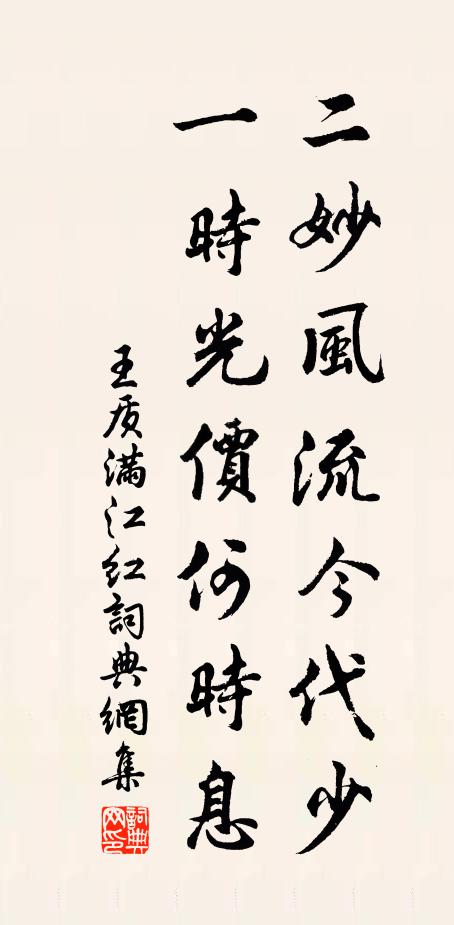 二妙風流今代少
一時光價何時息
王质滿江红詞典網集
詞典网印